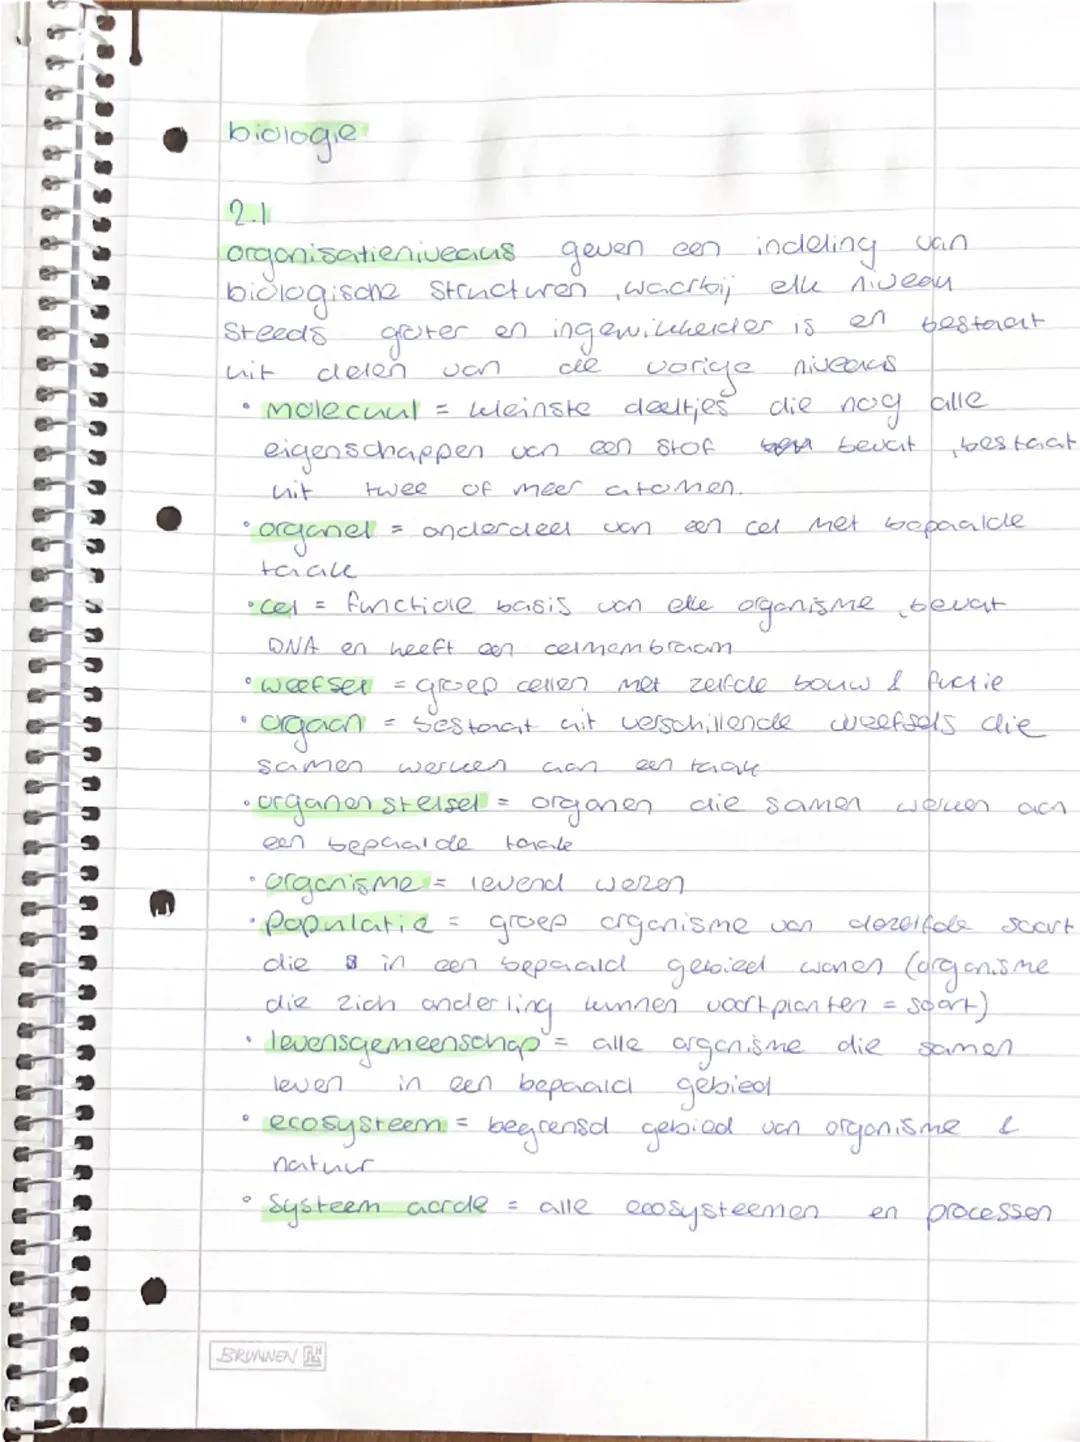 biologie
2.1
organisatieniveaus geven een indeling van
biologische structuren, waarbij elk niveau
steeds groter en ingewikkelder is en bestaat
uit delen van de vorige niveaus
• molecuul = kleinste deeltjes die nog alle
eigenschappen van een stof bevat, bestaat
uit twee of meer atomen.
• organel = onderdeel van een cel met bepaalde
taak
• cel = functiole basis van elke organisme, bevat
DNA en heeft een celmembraam
• weefsel = groep cellen met zelfde bouw & fuctie
• orgaan = bestaat uit verschillende weefsels die
samen werken aan een taak
• organen stelsel = organen die samen werken aan
een bepaalde taak
• organisme = levend wezen
• Populatie = groep organisme van dezelfde soort
die in een bepaald gebied wonen (organisme
die zich onderling kunnen voortplanten = soort)
• levensgemeenschap = alle organisme die samen
leven in een bepaald gebied
• ecosysteem = begrensd gebied van organisme &
natuur
• Systeem aarde = alle ecosysteemen en processen
BRUNNEN